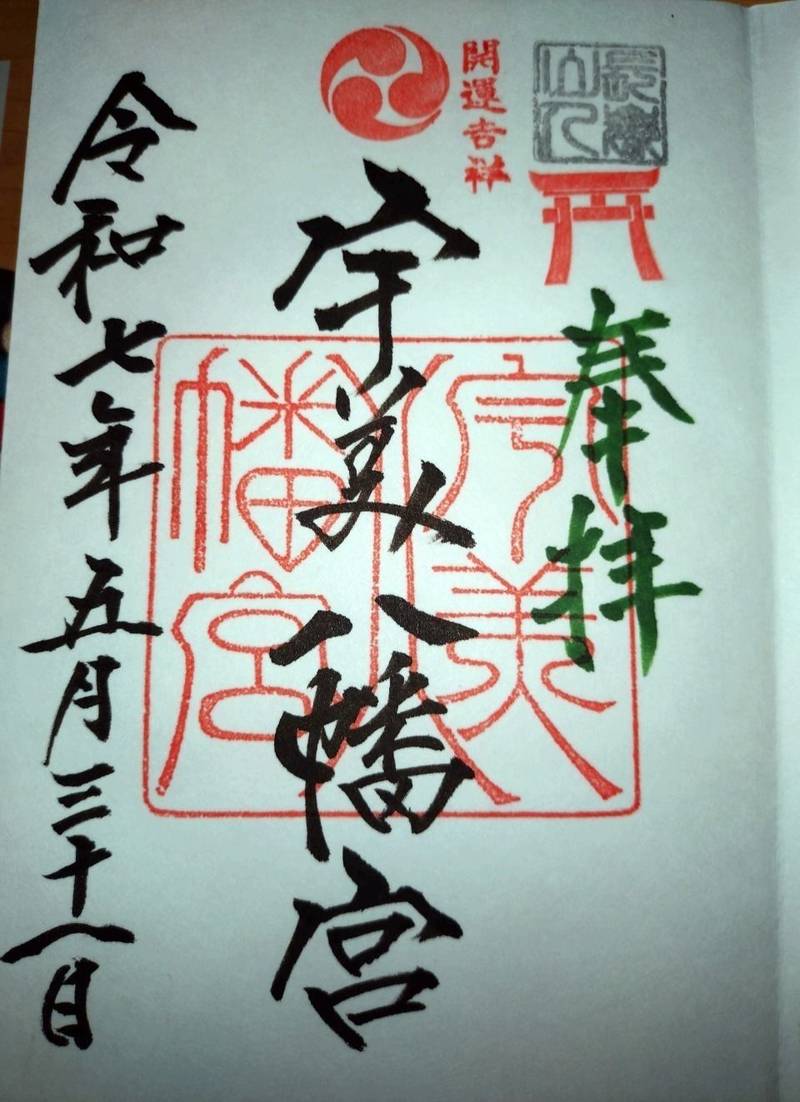 奉拝
開運吉祥
宇美八幡宮
宇美八幡宮
令和七年五月三十一日